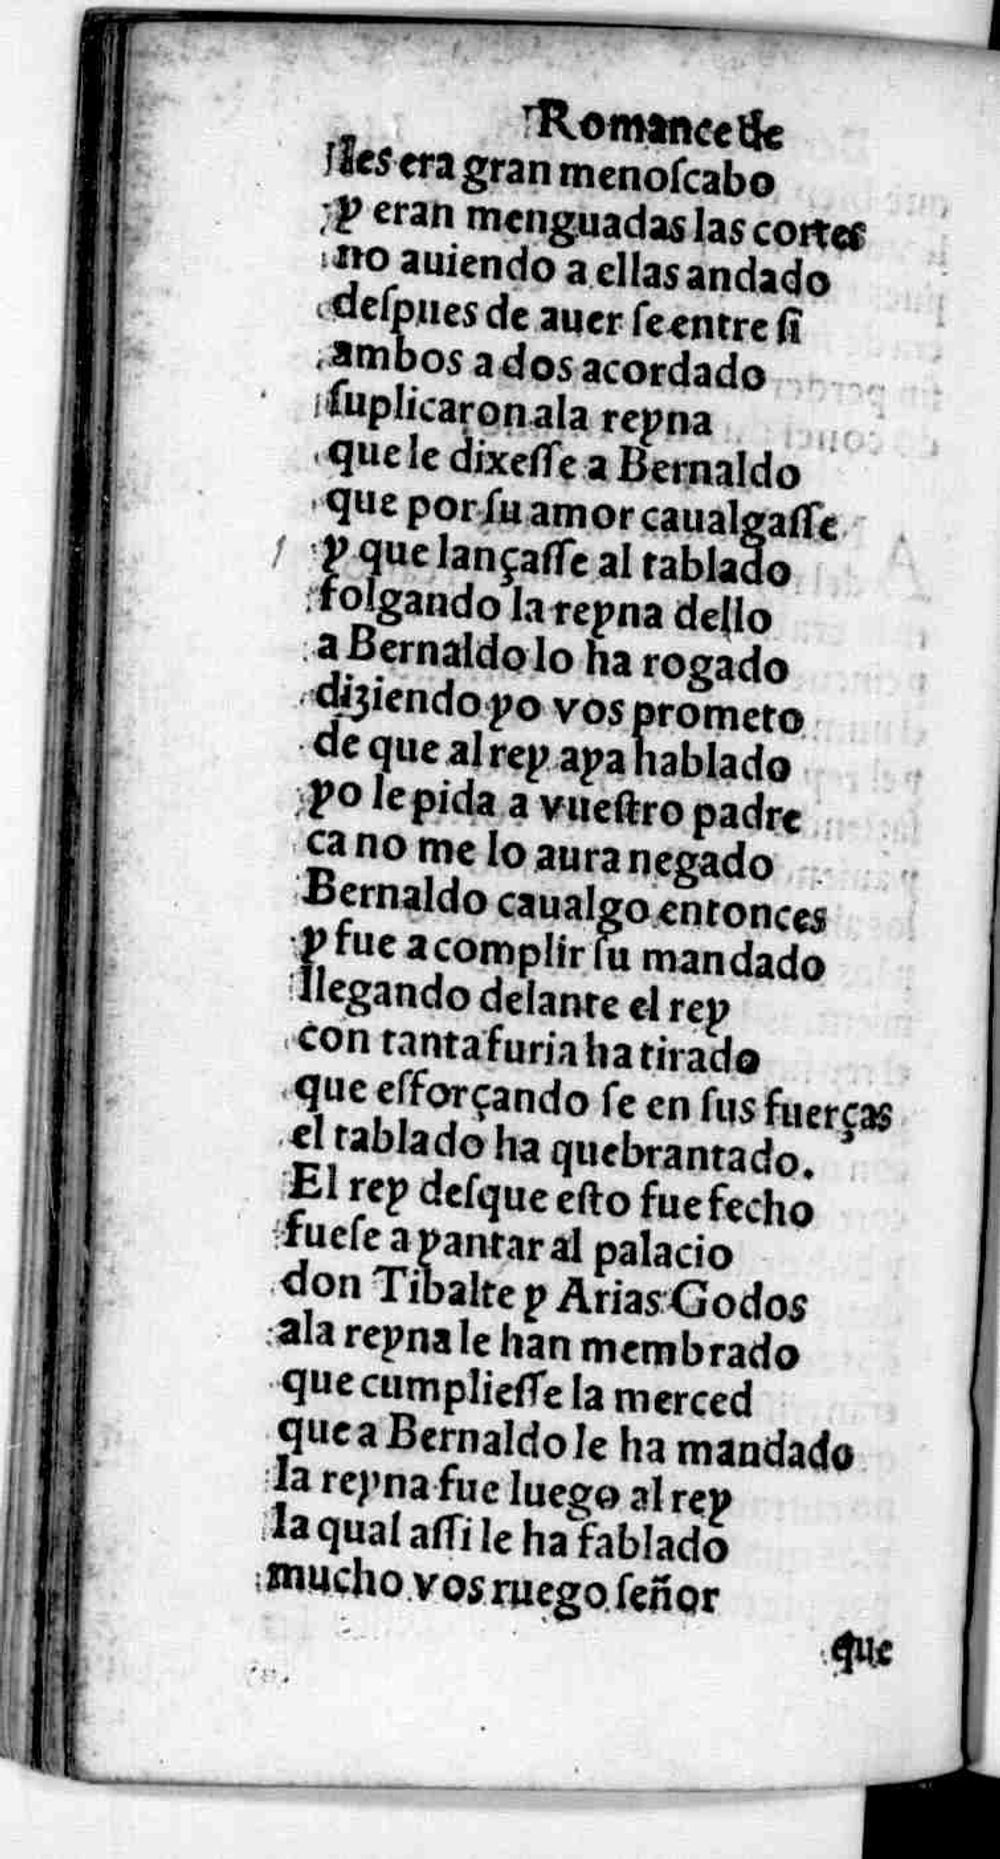 Romance de
les era gran menoſcabo
y eran menguadas las cortes
no auiendo a ellas andado
deſpues de auer ſe entre ſi
ambos a dos acordado
ſuplicaron ala reyna
que le dixeſſe a Bernaldo
que por ſu amor caualgaſſe
y que lançaſſe al tablado
folgando la reyna dello
a Bernaldo lo ha rogado
diziendo yo vos prometo
de que al rey aya hablado
yo le pida a vueſtro padre
ca no me lo aura negado
Bernaldo caualgo entonces
y fue a complir ſu mandado
llegando delante el rey
con tanta furia ha tirado
que eſforçando ſe en ſus fuerças
el tablado ha quebrantado.
El rey deſque eſto fue fecho
fueſe a yantar al palacio
don Tibalte y Arias Godos
ala reyna le han membrado
que cumplieſſe la merced
que a Bernaldo le ha mandado
la reyna fue luego al rey
la qual aſſi le ha fablado
mucho vos ruego ſeñor
que